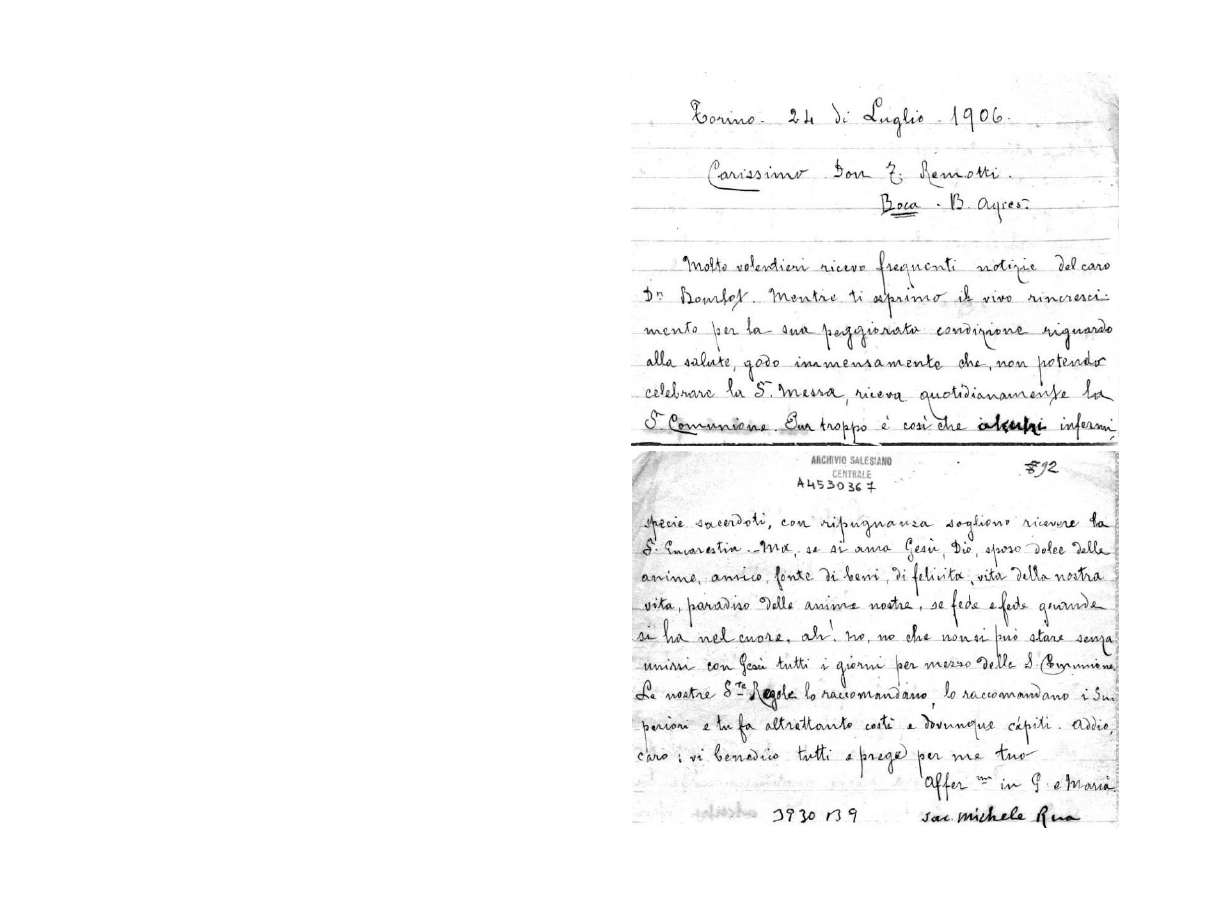 Torino. 24 di Luglio. 1906.
Carissimo Don F. Remotti.
Boca. B. Ayres.
Molto volentieri ricevo frequenti notizie del caro
Dn Bourlot. Mentre ti esprimo il vivo rincresci-
mento per la sua peggiorata condizione riguardo
alla salute, godo immensamente che, non potendo
celebrare la S. Messa, riceva quotidianamente la
S. Comunione. Pur troppo è così che alcuni infermi,
ARCHIVIO SALESIANO
CENTRALE
A4530367
892
specie sacerdoti, con ripugnanza sogliono ricevere la
S. Eucarestia. Ma, se si ama Gesù, Dio, sposo dolce delle
anime, amico, fonte di beni, di felicità, vita della nostra
vita, paradiso delle anime nostre, se fede e fede grande
si ha nel cuore, ah! no, no che non si può stare senza
unirsi con Gesù tutti i giorni per mezzo della S. Comunione.
Le nostre Ste Regole lo raccomandano, lo raccomandano i Su-
periori e tu fa altrettanto costì e dovunque càpiti. Addio,
caro: vi benedico tutti e prega per me tuo
Affez mo in G. e Maria
3930 B 9 sac. Michele Rua